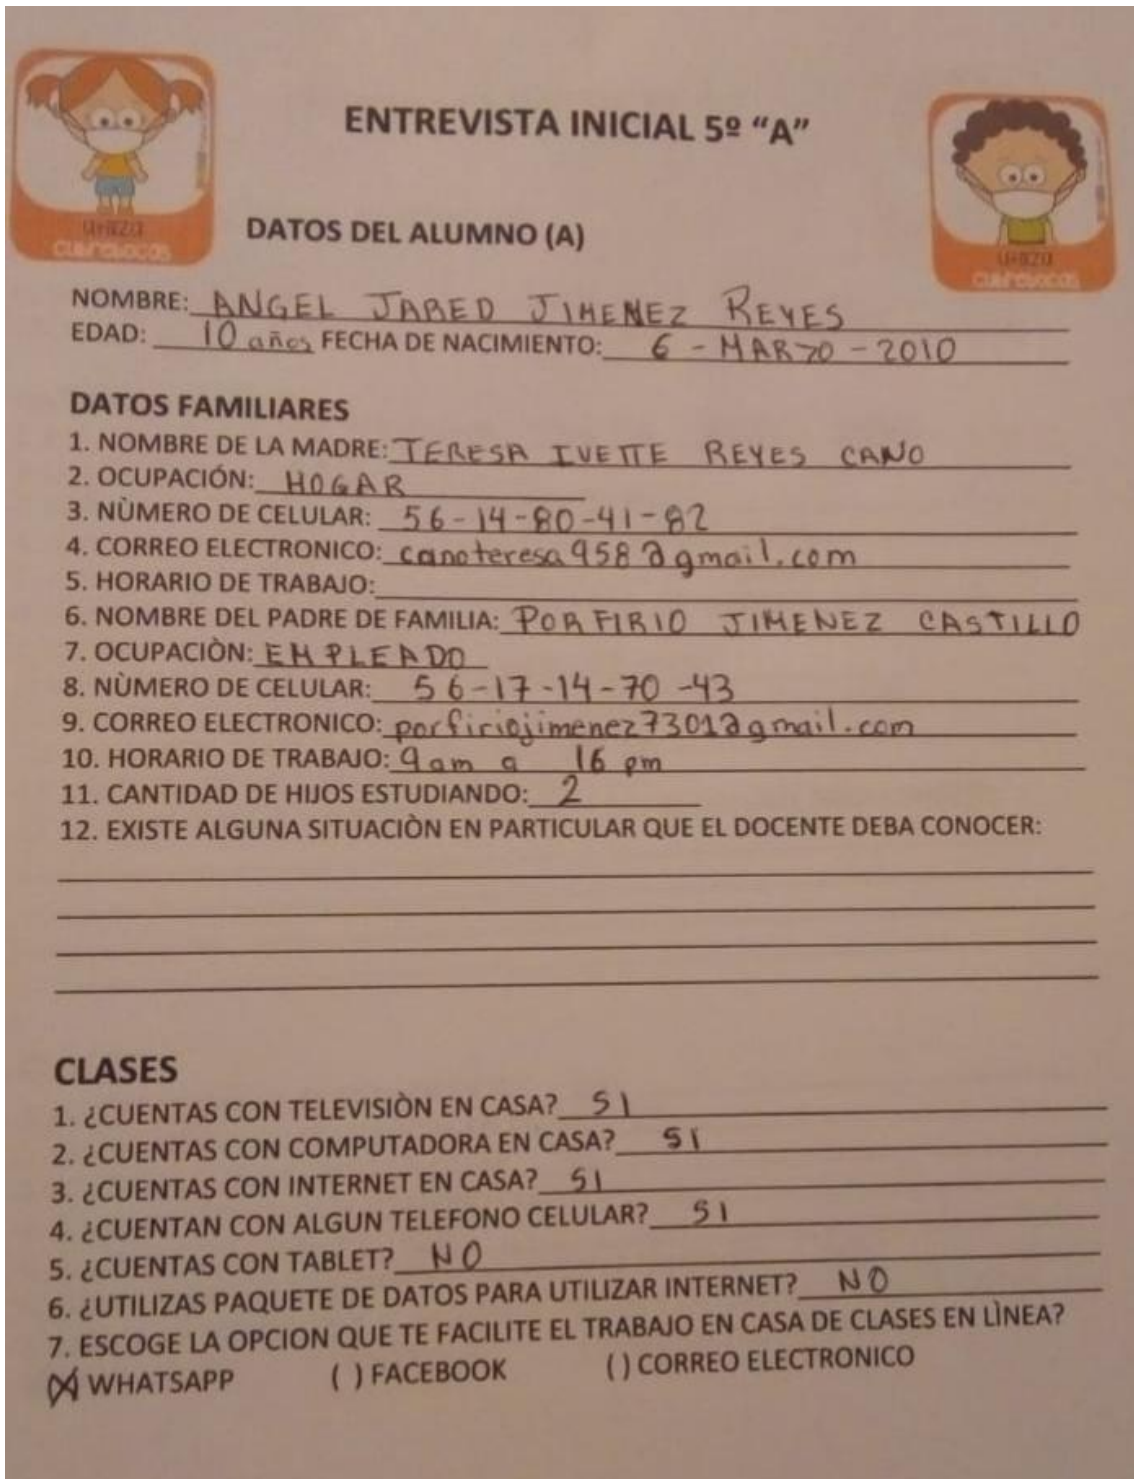 ENTREVISTA INICIAL 5º “A”
UTILIZA
CUBREBOCAS
DATOS DEL ALUMNO (A)
UTILIZA
CUBREBOCAS
NOMBRE: ANGEL JARED JIMENEZ REYES
EDAD: 10 años FECHA DE NACIMIENTO: 6 - MARZO - 2010
DATOS FAMILIARES
1. NOMBRE DE LA MADRE: TERESA IVETTE REYES CANO
2. OCUPACIÓN: HOGAR
3. NÙMERO DE CELULAR: 56-14-80-41-82
4. CORREO ELECTRONICO: canoteresa958@gmail.com
5. HORARIO DE TRABAJO:
6. NOMBRE DEL PADRE DE FAMILIA: PORFIRIO JIMENEZ CASTILLO
7. OCUPACIÒN: EMPLEADO
8. NÙMERO DE CELULAR: 56-17-14-70-43
9. CORREO ELECTRONICO: porfiriojimenez7301@gmail.com
10. HORARIO DE TRABAJO: 9am a 16 pm
11. CANTIDAD DE HIJOS ESTUDIANDO: 2
12. EXISTE ALGUNA SITUACIÒN EN PARTICULAR QUE EL DOCENTE DEBA CONOCER:
CLASES
1. ¿CUENTAS CON TELEVISIÒN EN CASA? SI
2. ¿CUENTAS CON COMPUTADORA EN CASA? SI
3. ¿CUENTAS CON INTERNET EN CASA? SI
4. ¿CUENTAN CON ALGUN TELEFONO CELULAR? SI
5. ¿CUENTAS CON TABLET? NO
6. ¿UTILIZAS PAQUETE DE DATOS PARA UTILIZAR INTERNET? NO
7. ESCOGE LA OPCION QUE TE FACILITE EL TRABAJO EN CASA DE CLASES EN LÌNEA?
(X) WHATSAPP ( ) FACEBOOK ( ) CORREO ELECTRONICO